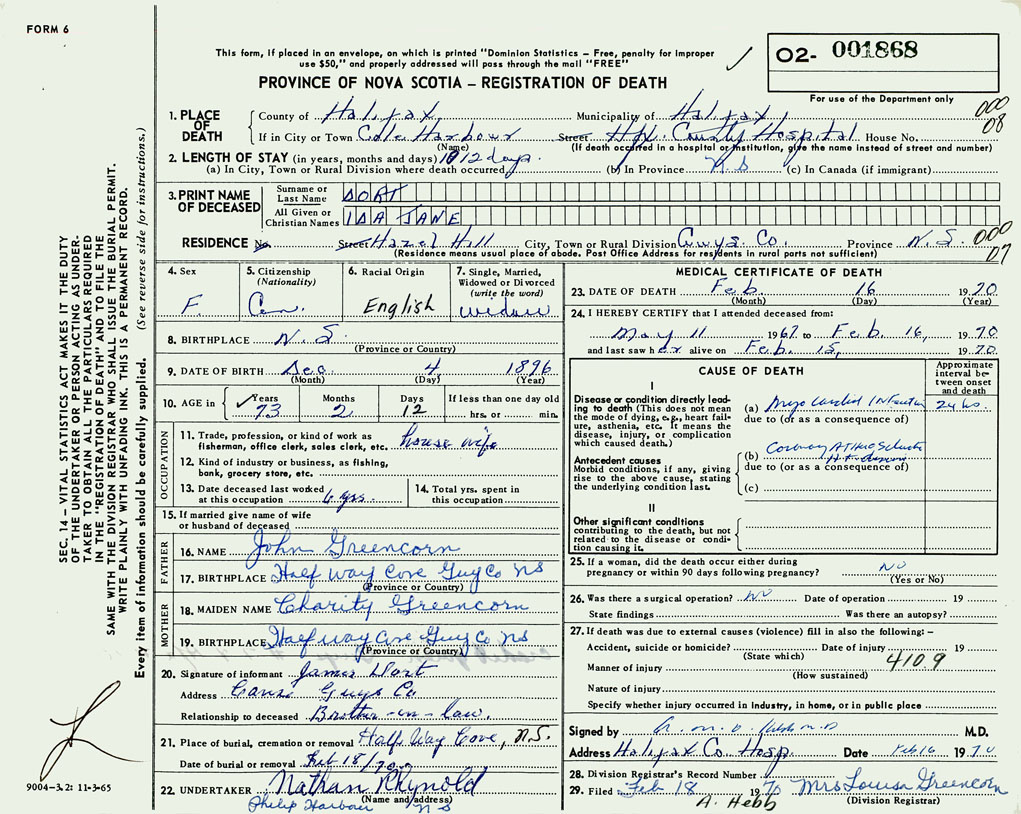 FORM 6
This form, if placed in an envelope, on which is printed "Dominion Statistics – Free, penalty for improper
use $50," and properly addressed will pass through the mail "FREE"
O2- 001868
PROVINCE OF NOVA SCOTIA – REGISTRATION OF DEATH
For use of the Department only
000
08
1. PLACE OF DEATH
County of Halifax Municipality of Halifax
If in City or Town Cole Harbour Street Hfx. County Hospital House No.
(Name) (If death occurred in a hospital or institution, give the name instead of street and number)
2. LENGTH OF STAY (in years, months and days) 12 days.
(a) In City, Town or Rural Division where death occurred (b) In Province N.S (c) In Canada (if immigrant)
3. PRINT NAME OF DECEASED
Surname or Last Name DORT
All Given or Christian Names IDA JANE
RESIDENCE No. Street Hazel Hill City, Town or Rural Division Guys. Co. Province N.S.
000
07
(Residence means usual place of abode. Post Office Address for residents in rural parts not sufficient)
4. Sex F.
5. Citizenship (Nationality) Can.
6. Racial Origin English
7. Single, Married, Widowed or Divorced (write the word) widow
8. BIRTHPLACE N.S.
(Province or Country)
9. DATE OF BIRTH Dec. 4 1896
(Month) (Day) (Year)
10. AGE in Years 73 Months 2 Days 12 If less than one day old hrs. or min.
OCCUPATION
11. Trade, profession, or kind of work as
fisherman, office clerk, sales clerk, etc. house wife
12. Kind of industry or business, as fishing,
bank, grocery store, etc.
13. Date deceased last worked
at this occupation 6 yrs.
14. Total yrs. spent in
this occupation
15. If married give name of wife
or husband of deceased
FATHER
16. NAME John Greencorn
17. BIRTHPLACE Half way Cove Guy Co NS
(Province or Country)
MOTHER
18. MAIDEN NAME Charity Greencorn
19. BIRTHPLACE Half way Cove Guy Co NS
(Province or Country)
20. Signature of informant James Dort
Address Canso Guys Co
Relationship to deceased Brother-in-law.
21. Place of burial, cremation or removal Half Way Cove, N.S.
Date of burial or removal Feb 18/70
22. UNDERTAKER Nathan Rhynold
(Name and address)
Philip Harbour NS
MEDICAL CERTIFICATE OF DEATH
23. DATE OF DEATH Feb. 16 1970
(Month) (Day) (Year)
24. I HEREBY CERTIFY that I attended deceased from:
May 11 1967 to Feb. 16, 1970
and last saw her alive on Feb. 15, 1970.
CAUSE OF DEATH
Approximate interval between onset and death
I
Disease or condition directly leading to death (This does not
mean the mode of dying, e.g., heart failure, asthenia, etc. It means the
disease, injury, or complication
which caused death.)
(a) Myocardial Infarction 24 hrs.
due to (or as a consequence of)
Antecedent causes
Morbid conditions, if any, giving
rise to the above cause, stating
the underlying condition last.
(b) Coronary
due to (or as a consequence of)
(c)
II
Other significant conditions
contributing to the death, but not
related to the disease or condition causing it.
25. If a woman, did the death occur either during
pregnancy or within 90 days following pregnancy? NO
(Yes or No)
26. Was there a surgical operation? NO Date of operation 19
State findings Was there an autopsy?
27. If death was due to external causes (violence) fill in also the following:–
Accident, suicide or homicide? Date of injury 19
(State which)
4109
Manner of injury
(How sustained)
Nature of injury
Specify whether injury occurred in industry, in home, or in public place
Signed by M.D.
Address Halifax Co. Hosp. Date Feb 16 1970
28. Division Registrar's Record Number
29. Filed Feb 18 1970 Mrs Louisa Greencorn
A. Hebb (Division Registrar)
SEC. 14 – VITAL STATISTICS ACT MAKES IT THE DUTY
OF THE UNDERTAKER OR PERSON ACTING AS UNDERTAKER TO OBTAIN ALL THE PARTICULARS REQUIRED
IN THE "REGISTRATION OF DEATH" AND TO FILE THE
SAME WITH THE DIVISION REGISTRAR WHO SHALL ISSUE THE BURIAL PERMIT.
WRITE PLAINLY WITH UNFADING INK. THIS IS A PERMANENT RECORD.
Every item of information should be carefully supplied. (See reverse side for instructions.)
9004-3.2: 11-3-65